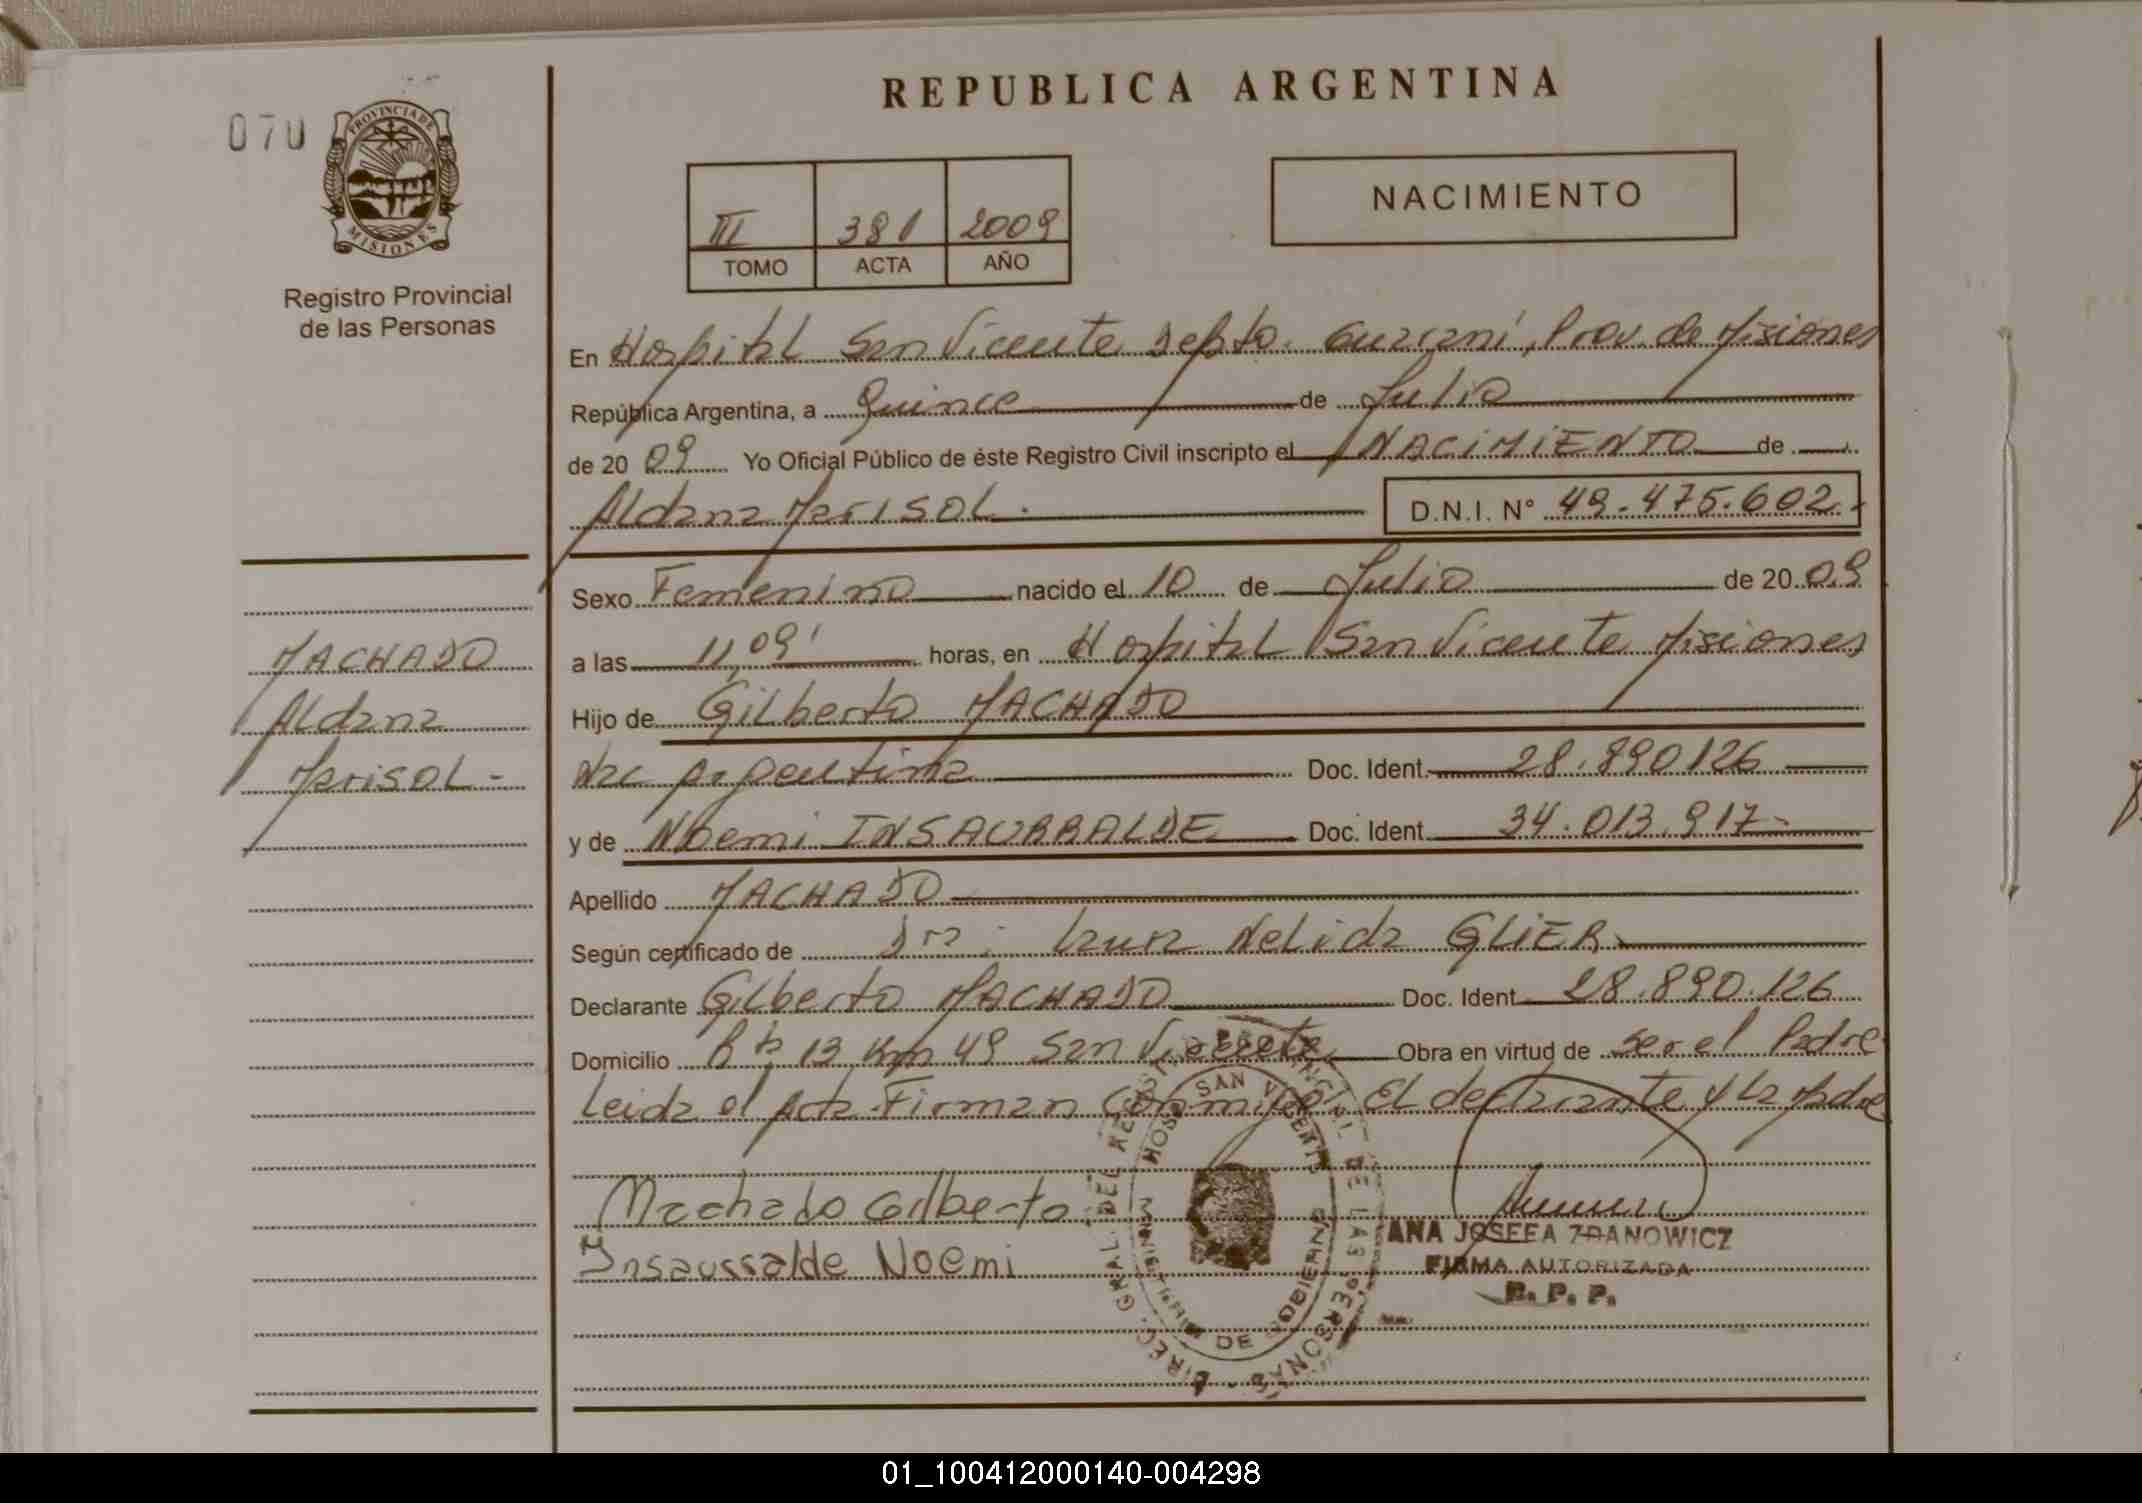 REPUBLICA ARGENTINA
070
PROVINCIA DE
MISIONES
Registro Provincial
de las Personas
III 381 2009
TOMO ACTA AÑO
NACIMIENTO
En Hospital San Vicente Depto. Guaraní, Prov. de Misiones
República Argentina, a Quince de Julio
de 2009 Yo Oficial Público de éste Registro Civil inscripto el NACIMIENTO de
Aldana Marisol. D.N.I. N° 49.475.602.-
Sexo Femenino nacido el 10 de Julio de 2009
a las 11,09' horas, en Hospital San Vicente Misiones
Hijo de Gilberto MACHADO
Nac Argentina Doc. Ident. 28.890126
y de Noemi INSAURRALDE Doc. Ident. 34.013.917-
Apellido MACHADO
Según certificado de Dra. Laura Nelida GLIER
Declarante Gilberto MACHADO Doc. Ident. 28.890.126
Domicilio Rta 13 Km 49 San Vicente Obra en virtud de ser el Padre
Leida el Acta Firman Conmigo El declarante y La Madre
MACHADO
Aldana
Marisol-
Machado Gilberto
Insaurralde Noemi
DIREC. GRAL. DEL REG. PROVINCIAL DE LAS PERSONAS
HOSP. SAN VICENTE
MINISTERIO DE GOBIERNO
ANA JOSEFA ZDANOWICZ
FIRMA AUTORIZADA
R. P. P.
01_100412000140-004298